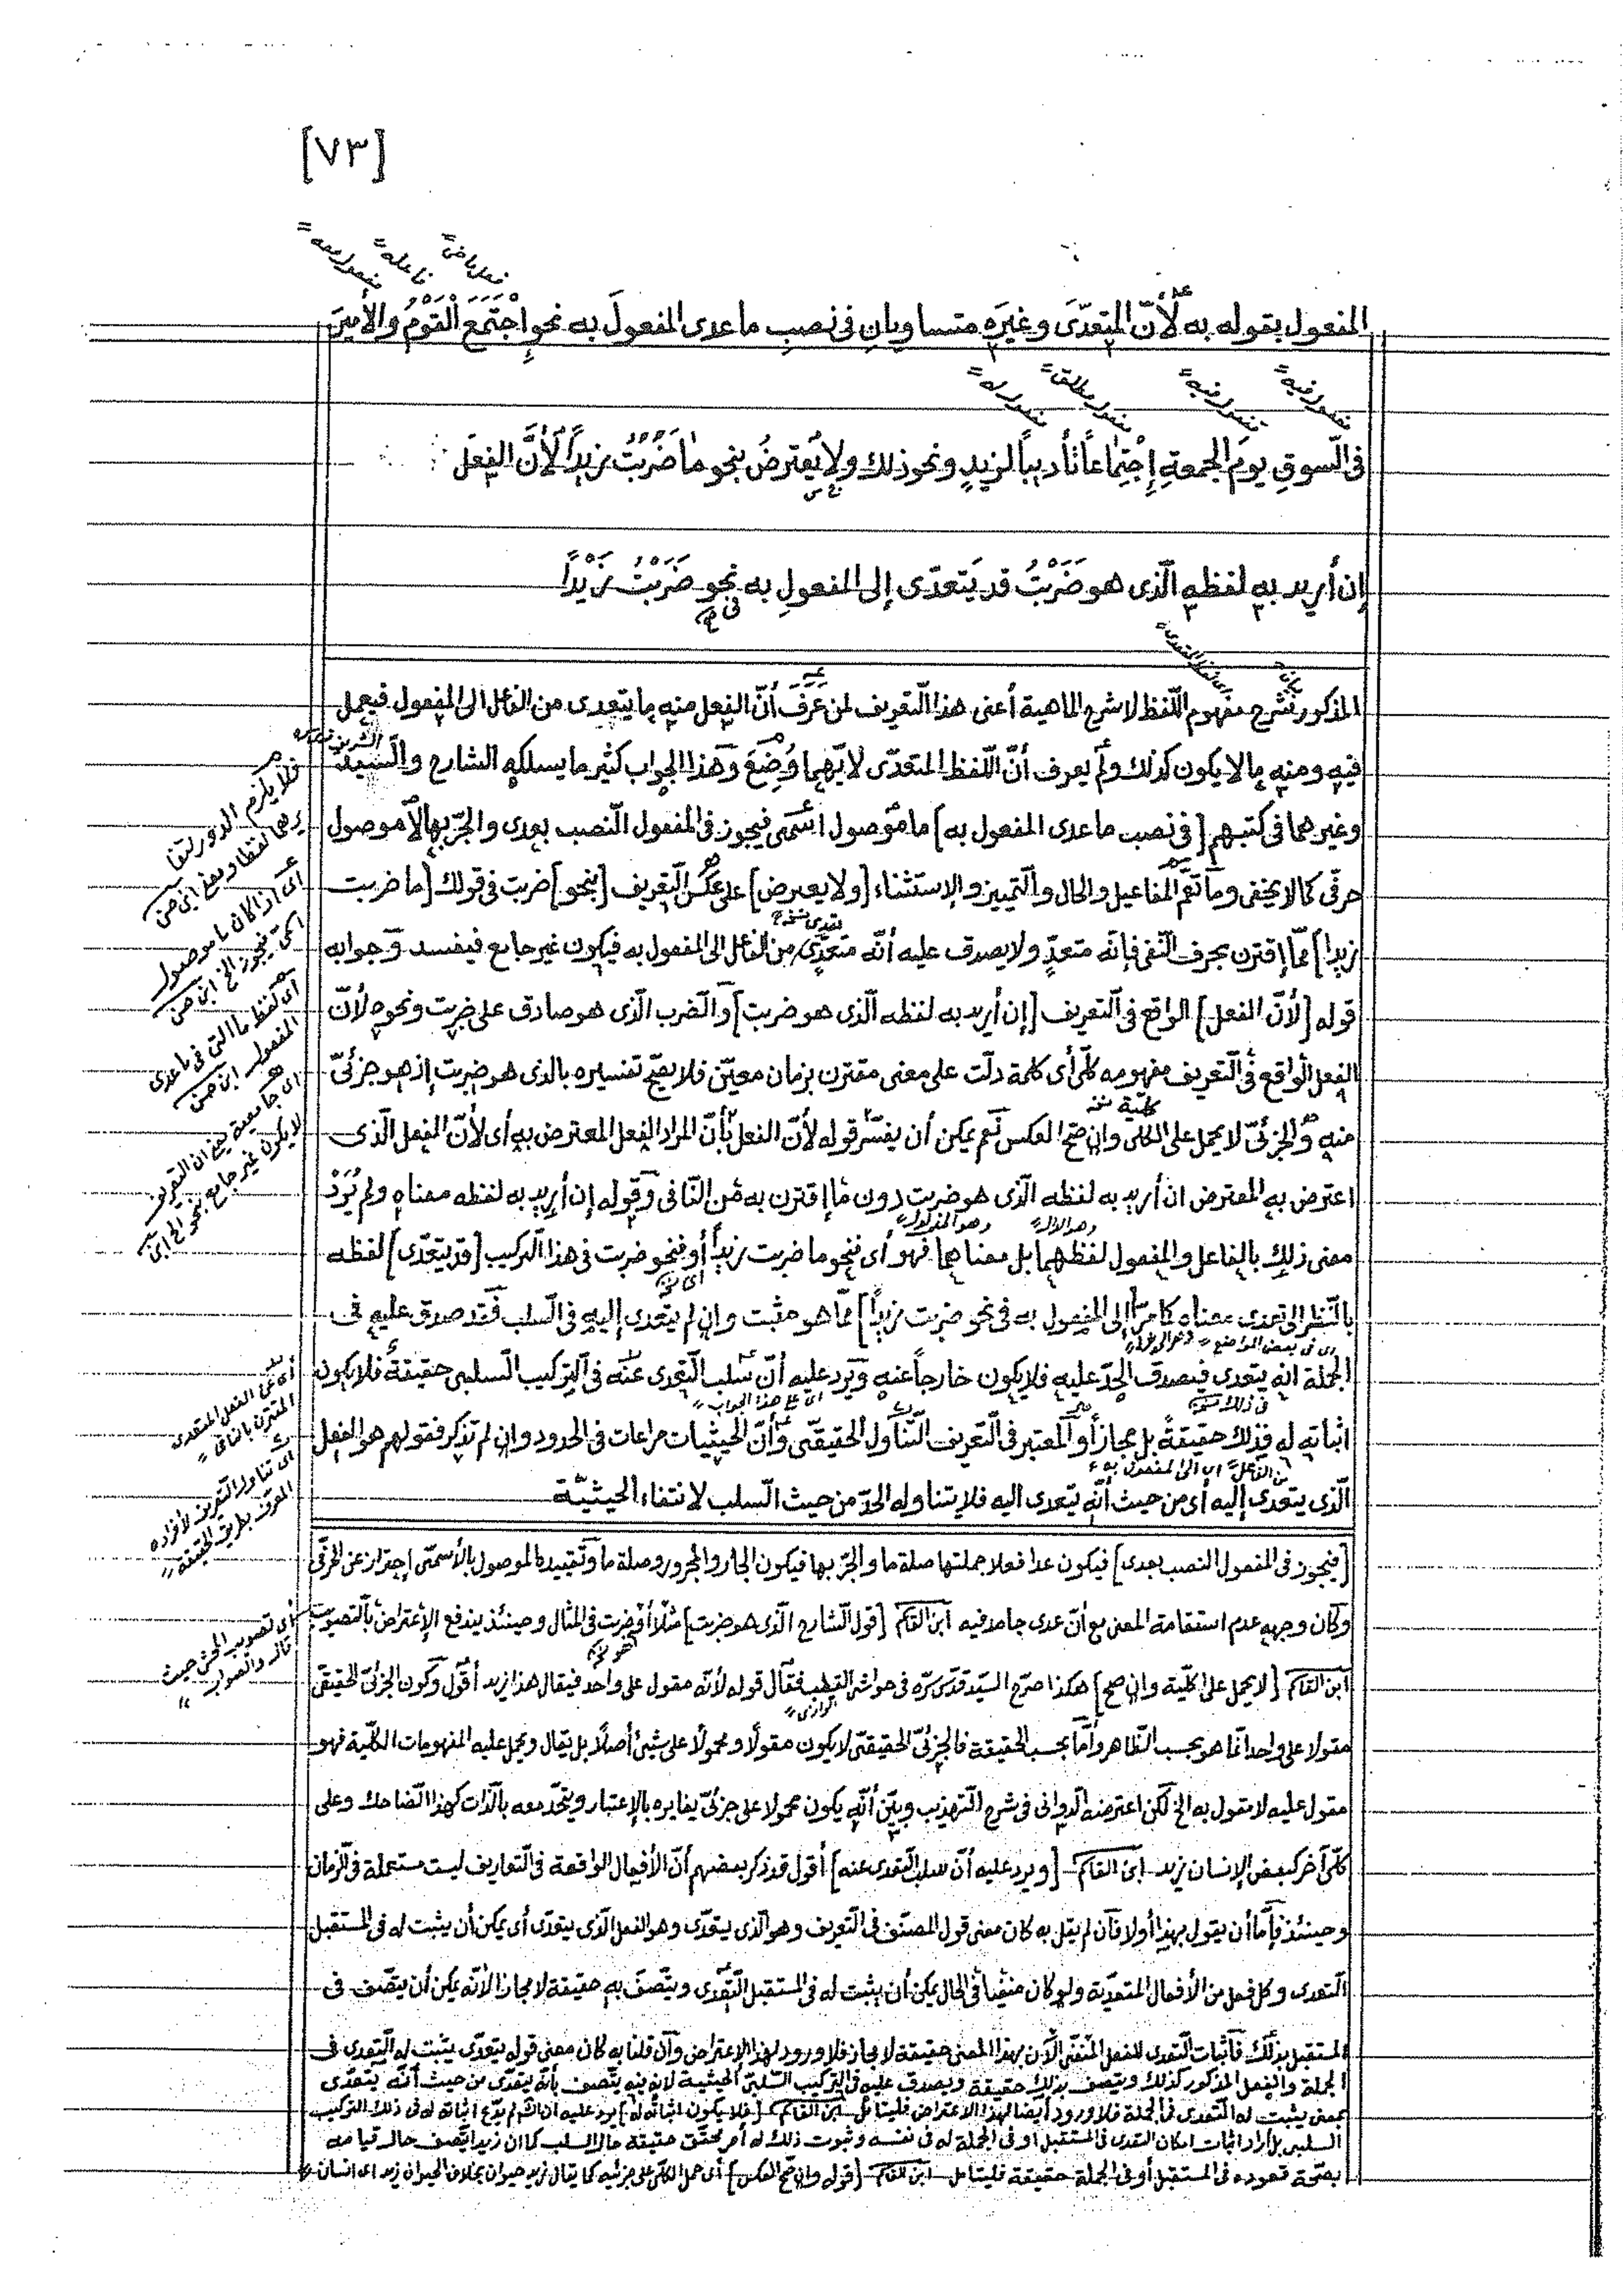 [٧٣]
المفعول بقوله به لأنّ المتعدّى وغيره متساويان فى نصب ماعدى المفعول به نحو إجتمع القوم والأمير
فى السّوق يوم الجمعة إجتماعاً تأديباً لزيد ونحو ذلك ولا يعترض بنحو ما ضربت زيداً لأنّ الفعل
إن أريد به لفظه الّذى هو ضَرَبْتُ قد يَتعدّى إلى المفعول به نحو ضَرَبْتُ زَيْداً
المذكور لشرح مفهوم اللّفظ لا شرح الماهية أعنى هذا التّعريف لمن عَرَفَ أنّ الفعل منه ما يتعدى من الفاعل الى المفعول فيعمل
فيه ومنه ما لا يكون كذلك ولم يعرف أنّ اللّفظ المتعدّى لايّهما وُضِعَ وهذا الجواب كثير ما يسلكه الشارح والسّيد
وغيرهما فى كتبهم [فى نصب ماعدى المفعول به] ما موصول اسمى فيجوز فى المفعول النّصب بعدى والجرّ بها لا موصول
حرفّى كما لا يخفى وما تعمّ المفاعيل والحال والتّمييز والإستثناء [ولا يعترض] على عكس التّعريف [بنحو] ضربت فى قولك [ما ضربت
زيدا] ممّا إقترن بحرف النّفى فإنّه متعدٍّ ولا يصدق عليه أنّه متعدّى من الفاعل الى المفعول به فيكون غير جامع فيفسد وجوابه
قوله [لأنّ الفعل] الواقع فى التّعريف [إن أريد به لفظه الّذى هو ضربت] والضرب الّذى هو صادق على ضربت ونحوه لأنّ
الفعل الواقع فى التّعريف مفهومه كلّى أى كلمة دلّت على معنى مقترن بزمان معيّن فلا يصّح تفسيره بالذى هو ضربت إذ هو جزئىّ
منه والجزئىّ لا يحمل على الكلى وان صحّ العكس نعم يمكن أن يفسّر قوله لأنّ الفعل بأنّ المراد الفعل المعترض به أى لأنّ الفعل الّذى
اعترض به المعترض ان أريد به لفظه الّذى هو ضربت دون ما إقترن به من النّافى وقوله إن أريد به لفظه معناه ولم يُرَدْ
معنى ذلك بالفاعل والمفعول لفظهما بل معناهما فهو أى نحو ما ضربت زيداً أو فنحو ضربت فى هذا التّركيب [قد يتعدّى] لفظه
بالنّظر الى تعدى معناه كما مرّ [إلى المفعول به فى نحو ضربت زيداً] ممّا هو مثبت وان لم يتعدى إليه فى السّلب فقد صدق عليه فى
الجملة انه يتعدى فيصدق الحدّ عليه فلا يكون خارجاً عنه ويرد عليه أنّ سلب التّعدى عنه فى التركيب السّلبى حقيقةً فلا يكون
اثباته له فى ذلك حقيقةً بل مجاز أو المعتبر فى التّعريف التّناول الحقيقىّ وأنّ الحيثيات مراعات فى الحدود وان لم تذكر فقولهم هو الفعل
الّذى يتعدى إليه أى من حيث أنّه يتعدى اليه فلا يتناوله الحدّ من حيث السّلب لانتفاء الحيثيّة
[فيجوز فى المفعول النصب بعدى] فيكون عدا فعلا جملتها صلة ما والجرّ بها فيكون الجار والمجرور وصلة ما وتقييده الموصول بالأسمىّ إحتراز عن الحرفّى
وكان وجهه عدم استقامة المعنى مع أنّ عدى جامد فيه ابن القاسم [قول الشّارح الّذى هو ضربت] مثلاً أو ضربت فى المثال وحينئذ يندفع الإعتراض بالتصويب
ابن القاسم [لا يحمل على الكليّة وان صح] هكذا صرّح السيّد قدّس سرّه فى حواشى القطب فقال قوله لأنّه مقول على واحد فيقال هذا زيد أقول وكون الجزئىّ الحقيقى
مقولا على واحد انّما هو بحسب الظّاهر وأمّا بحسب الحقيقة فالجزئىّ الحقيقىّ لا يكون مقولًا ومحمولًا على شيئ أصلًا بل يقال ويحمل عليه المفهومات الكلّية فهو
مقول عليه لا مقول به الخ لكن اعترضه الدّوانى فى شرح التهذيب وبيّن أنّه يكون محمولا على جزئىّ يغايره بالإعتبار ويتحد معه بالذّات كهذا الضاحك وعلى
كلّى آخر كبعض الإنسان زيد ابن القاسم [ويرد عليه أنّ سلب التّعدى عنه] أقول قد ذكر بعضهم أنّ الأفعال الواقعة فى التّعاريف ليست مستعملة فى الزمان
وحينئذ فإمّا أن يقول بهذا أولا فان لم يقل به كان معنى قول المصنّف فى التّعريف وهو الّذى يتعدّى وهو الفعل الّذى يتعدّى أى يمكن أن يثبت له فى المستقبل
التّعدى وكل فعل من الأفعال المتعديّة ولو كان منفيّا فى الحال يمكن أن يثبت له فى المستقبل التّعدّى ويتّصف به حقيقة لا مجازا لأنّه يمكن أن يتّصف فى
المستقبل بذلك فاثبات التّعدى للفعل المنفى الآن بهذا المعنى حقيقة لا مجاز فلا ورود لهذا الإعتراض وان قلنا به كان معنى قوله يتعدّى يثبت له التّعدى فى
الجملة والفعل المذكور كذلك ويتّصف بذلك حقيقة ويصدق عليه فى التركيب السّلبىّ الحيثية لانه فيه يتّصف بأنّه يتعدّى من حيث أنّه يتعدّى
بمعنى يثبت له التّعدى فى الجملة فلا ورود أيضا لهذا الاعتراض فليتأمّل ابن القاسم [فلا يكون اثباته له] يرد عليه أن الشّارح لم يدّع اثباته له فى ذلك التركيب
السلبى بل أراد اثبات امكان التعدى فى المستقبل أو فى الجملة له فى نفسه وثبوت ذلك له أمر محقّق حقيقة حال السلب كما ان زيدا يتّصف حال قيامه
بصحّة قعوده فى المستقبل أو فى الجملة حقيقة فليتأمل ابن القاسم [قوله وان صحّ العكس] أى حمل الكلّى على جزئيه كما يقال زيد حيوان بخلاف الحيوان زيد اى انسان